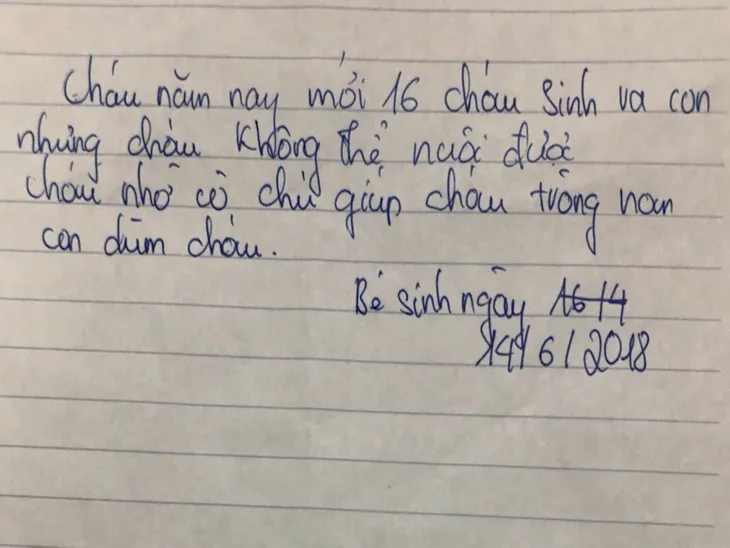 Cháu năm nay mới 16 cháu sinh va con
nhưng cháu không thể nuôi được
cháu nhờ cô chú giúp cháu tường nan
con dùm cháu.
Bé sinh ngày 16 14
14/6/2018